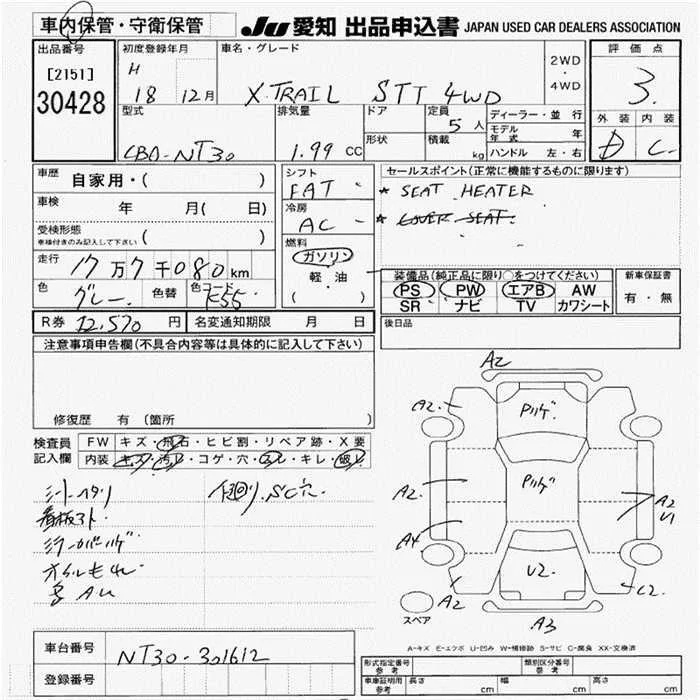 車内保管・守衛保管
JU 愛知 出品申込書 JAPAN USED CAR DEALERS ASSOCIATION
出品番号 初度登録年月 車名・グレード 2WD・4WD 評価点
[2151]
30428
H 18 12月 X.TRAIL STT 4WD 3.
型式 排気量 ドア 定員 5人 ディーラー・並行 外装 内装
CBA-NT30 1.99 CC 形状 積載 kg モデル年式 年 D C-
ハンドル 左・右
車歴 自家用・( ) シフト セールスポイント(正常に機能するものに限ります)
FAT * SEAT HEATER
車検 年 月( 日) 冷房 *
AC
受検形態 ( )
車検付きのみ記入して下さい
燃料
走行 17万7千080km ガソリン 装備品(純正品に限り○をつけてください) 新車保証書
軽・油 PS PW エアB AW 有・無
色 グレー 色替 色コード K55 ( ) SR ナビ TV カワシート
R券 12,570 円 名変通知期限 月 日 後日品
注意事項申告欄(不具合内容等は具体的に記入して下さい)
修復歴 有 (箇所 )
検査員 FW キズ・飛石・ヒビ割・リペア跡・X要
記入欄 内装 キズ・汚レ・コゲ・穴・スレ・キレ・破レ
シートヘタリ 下廻り.SC穴.
看板アト
ミラーカバーハゲ
オイルもれ
A2
A2 Pハゲ
A2 Pハゲ A2
U1
A4
U2
A2 C2
A3
スペア
A-キズ E-エクボ U-凹み W-補修跡 S-サビ C-腐食 XX-交換済
車台番号 NT30-301612
登録番号
形式指定番号 参考 類別区分番号 参考
車庫証明用 参考 長さ cm 幅 cm 高さ cm